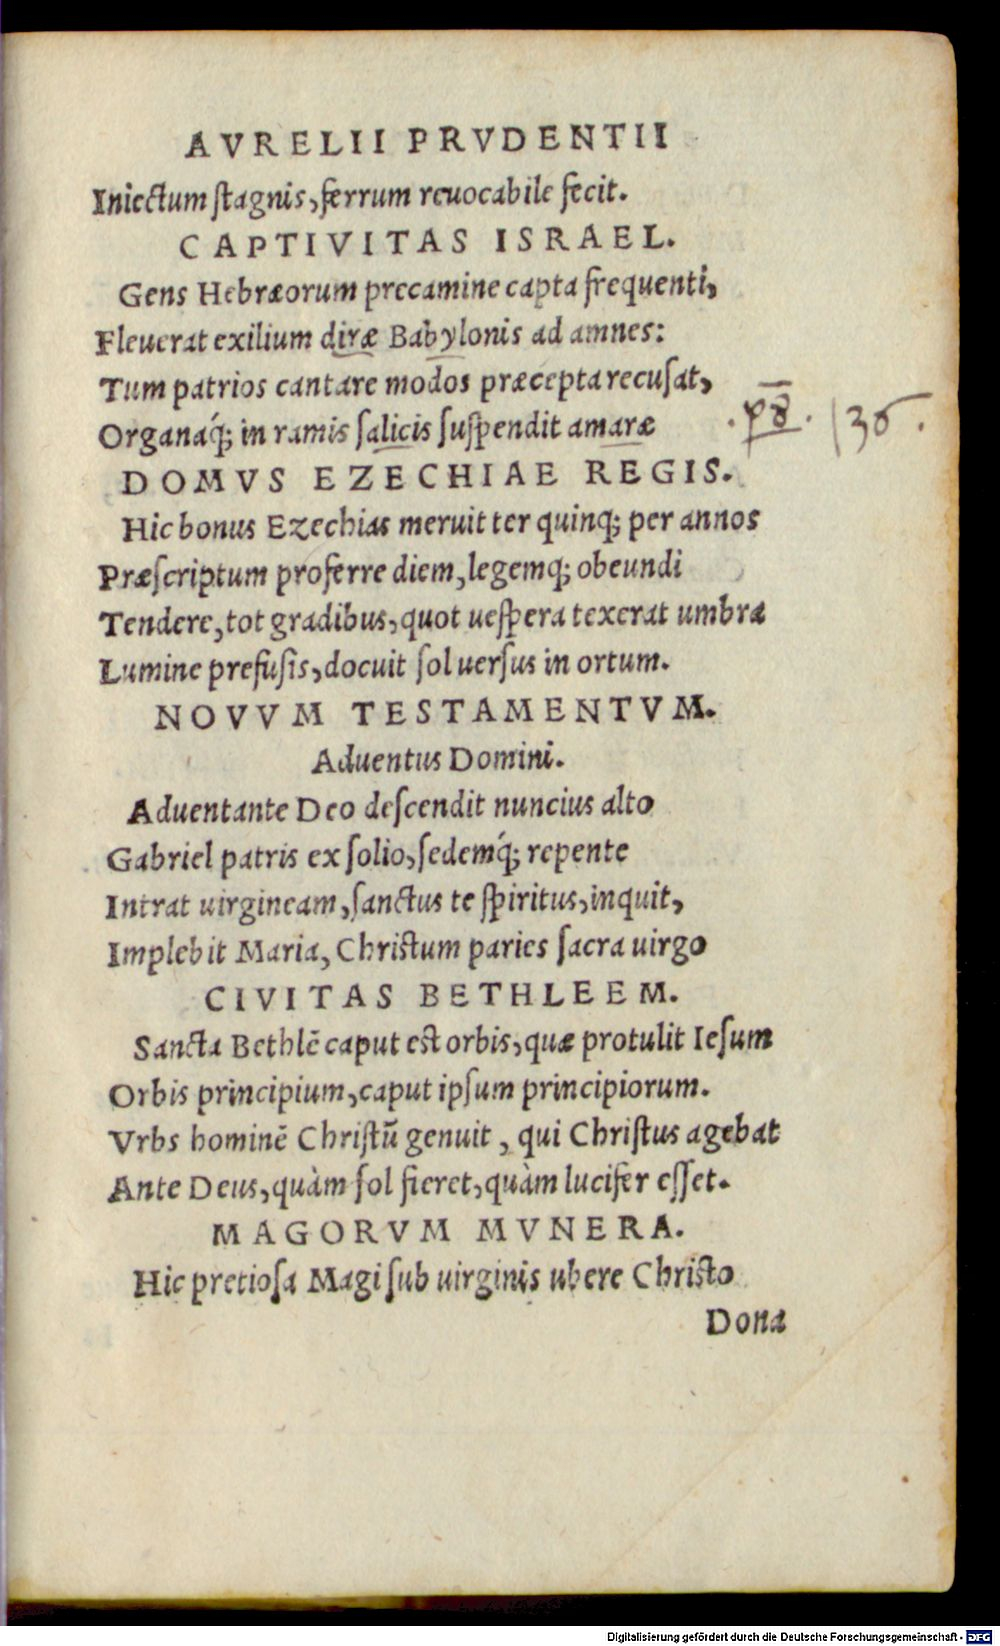 AVRELII PRVDENTII
Iniectum ſtagnis, ferrum reuocabile fecit.
CAPTIVITAS ISRAEL.
Gens Hebræorum precamine capta frequenti,
Fleuerat exilium diræ Babylonis ad amnes:
Tum patrios cantare modos præcepta recuſat,
Organaq́; in ramis ſalicis ſuſpendit amaræ
136.
DOMVS EZECHIAE REGIS.
Hic bonus Ezechias meruit ter quinq; per annos
Præſcriptum proferre diem, legemq; obeundi
Tendere, tot gradibus, quot ueſpera texerat umbra
Lumine prefuſis, docuit ſol uerſus in ortum.
NOVVM TESTAMENTVM.
Aduentus Domini.
Aduentante Deo deſcendit nuncius alto
Gabriel patris ex ſolio, ſedemq́; repente
Intrat uirgineam, ſanctus te ſpiritus, inquit,
Implebit Maria, Chriſtum paries ſacra uirgo
CIVITAS BETHLEEM.
Sancta Bethlē caput eſt orbis, quæ protulit Ieſum
Orbis principium, caput ipſum principiorum.
Vrbs hominē Chriſtū genuit, qui Chriſtus agebat
Ante Deus, quàm ſol fieret, quàm lucifer eſſet.
MAGORVM MVNERA.
Hic pretioſa Magi ſub uirginis ubere Chriſto
Dona
Digitalisierung gefördert durch die Deutsche Forschungsgemeinschaft - DFG